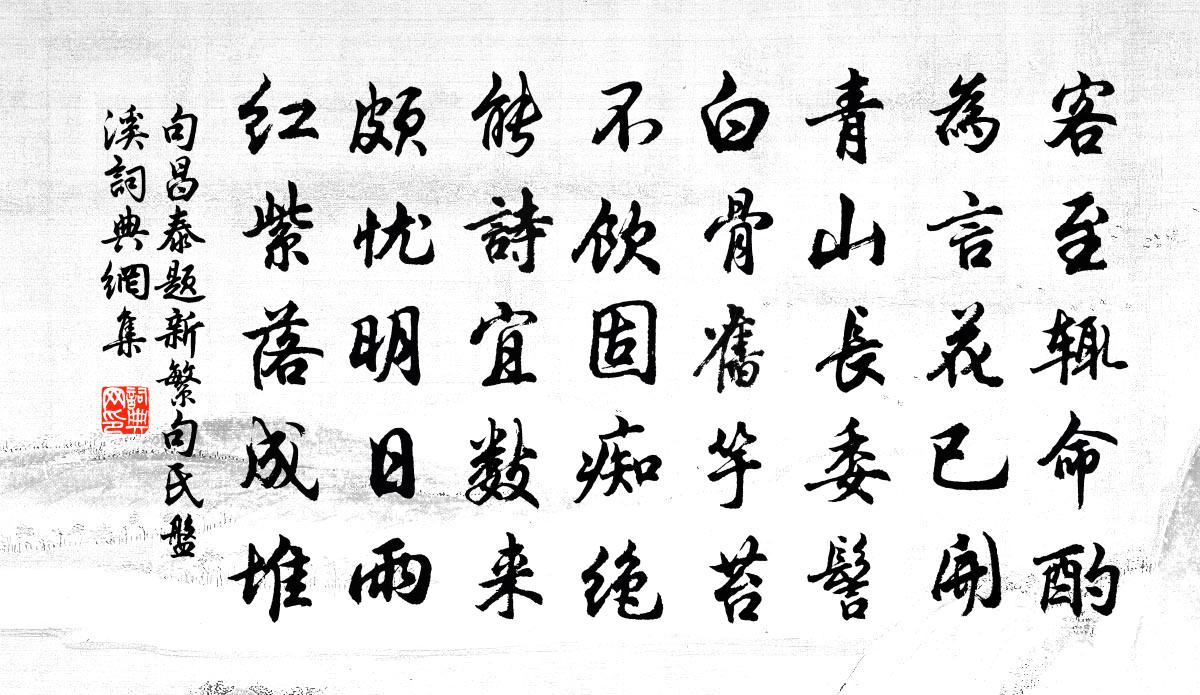 客至辄命酌
為言花已開
青山長委髻
白骨舊竿苔
不飲固痴絶
能詩宜数来
頗忧明日雨
红紫落成堆
句昌泰题新繁句氏盤
溪詞典網集
詞典
网印